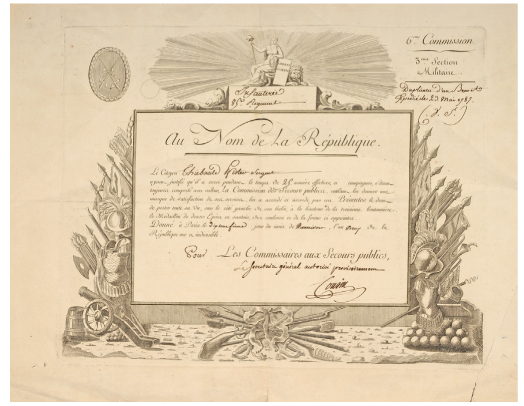 6me Commission
3me Section
Militaire.
Duplicata d'un Brevet
Expédié le 23 Mai 1787.
Infanterie
Regiment
Au Nom de la République.
Le Citoyen Thiebault Sergent
ayant justifié qu'il a servi pendant le temps de années effectives, campagnes,
la Commission des Secours publics, voulant lui donner une
marque de satisfaction de ses services, lui a accordé et accorde par ces Présentes le droit
de porter toute sa Vie, sur le côté gauche de son habit, à la hauteur de la troisième boutonnière,
le Médaillon de deux Épées en sautoir, des couleurs et de la forme ci apposées.
Donné à Paris le jour du mois de l'an de la
République une et indivisible.
Pour Les Commissaires aux Secours publics,
Le Secrétaire général autorisé provisoirement